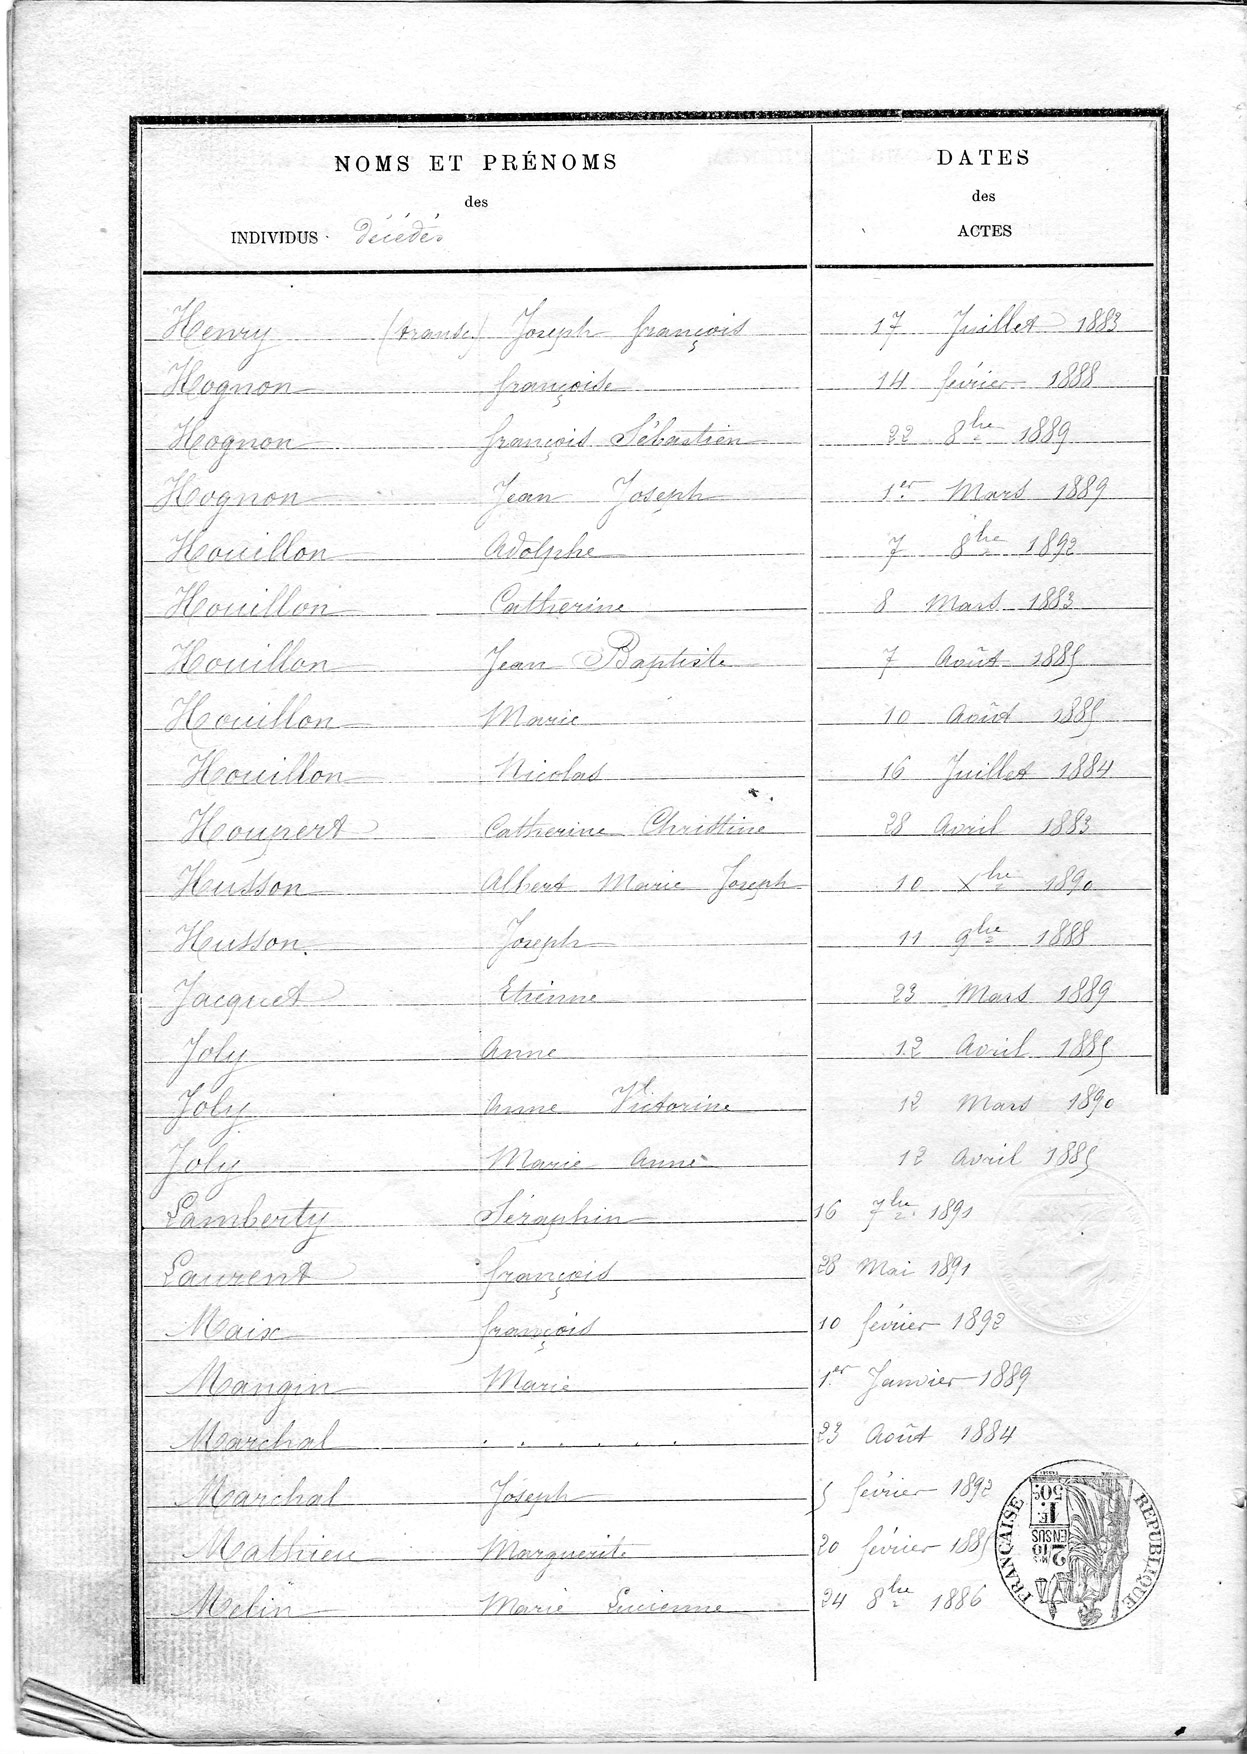 NOMS ET PRÉNOMS
des
INDIVIDUS décédés
DATES
des
ACTES
Henry (transc) Joseph françois 17 Juillet 1883
Hognon françoise 14 février 1888
Hognon françois Sébastien 22 8bre 1889
Hognon Jean Joseph 1er Mars 1889
Houillon Adolphe 7 8bre 1892
Houillon Catherine 8 Mars 1883
Houillon Jean Baptiste 7 Août 1885
Houillon Marie 10 Août 1885
Houillon Nicolas 16 Juillet 1884
Houpert Catherine Christine 28 Avril 1883
Husson Albert Marie Joseph 10 Xbre 1890
Husson Joseph 11 9bre 1888
Jacquet Etienne 23 Mars 1889
Joly Anne 12 Avril 1885
Joly Anne Victorine 12 Mars 1890
Joly Marie Anne 12 Avril 1885
Lamberty Séraphin 16 7bre 1891
Laurent françois 28 Mai 1891
Maix françois 10 février 1892
Mangin Marie 1er Janvier 1889
Marchal . . . . . . 23 Août 1884
Marchal Joseph 5 février 1892
Mathieu Marguerite 20 février 1885
Melin Marie Lucienne 24 8bre 1886
RÉPUBLIQUE FRANÇAISE
2/10 EN SUS
1F. 50c.